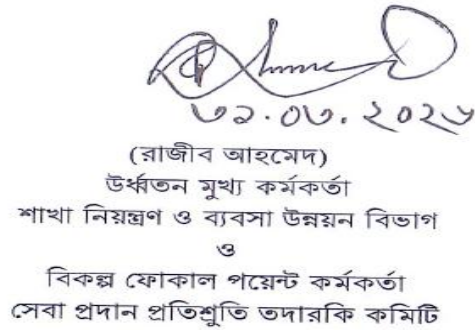 ৩১.০৩.২০২৬
(রাজীব আহমেদ)
উর্ধ্বতন মুখ্য কর্মকর্তা
শাখা নিয়ন্ত্রণ ও ব্যবসা উন্নয়ন বিভাগ
ও
বিকল্প ফোকাল পয়েন্ট কর্মকর্তা
সেবা প্রদান প্রতিশ্রুতি তদারকি কমিটি